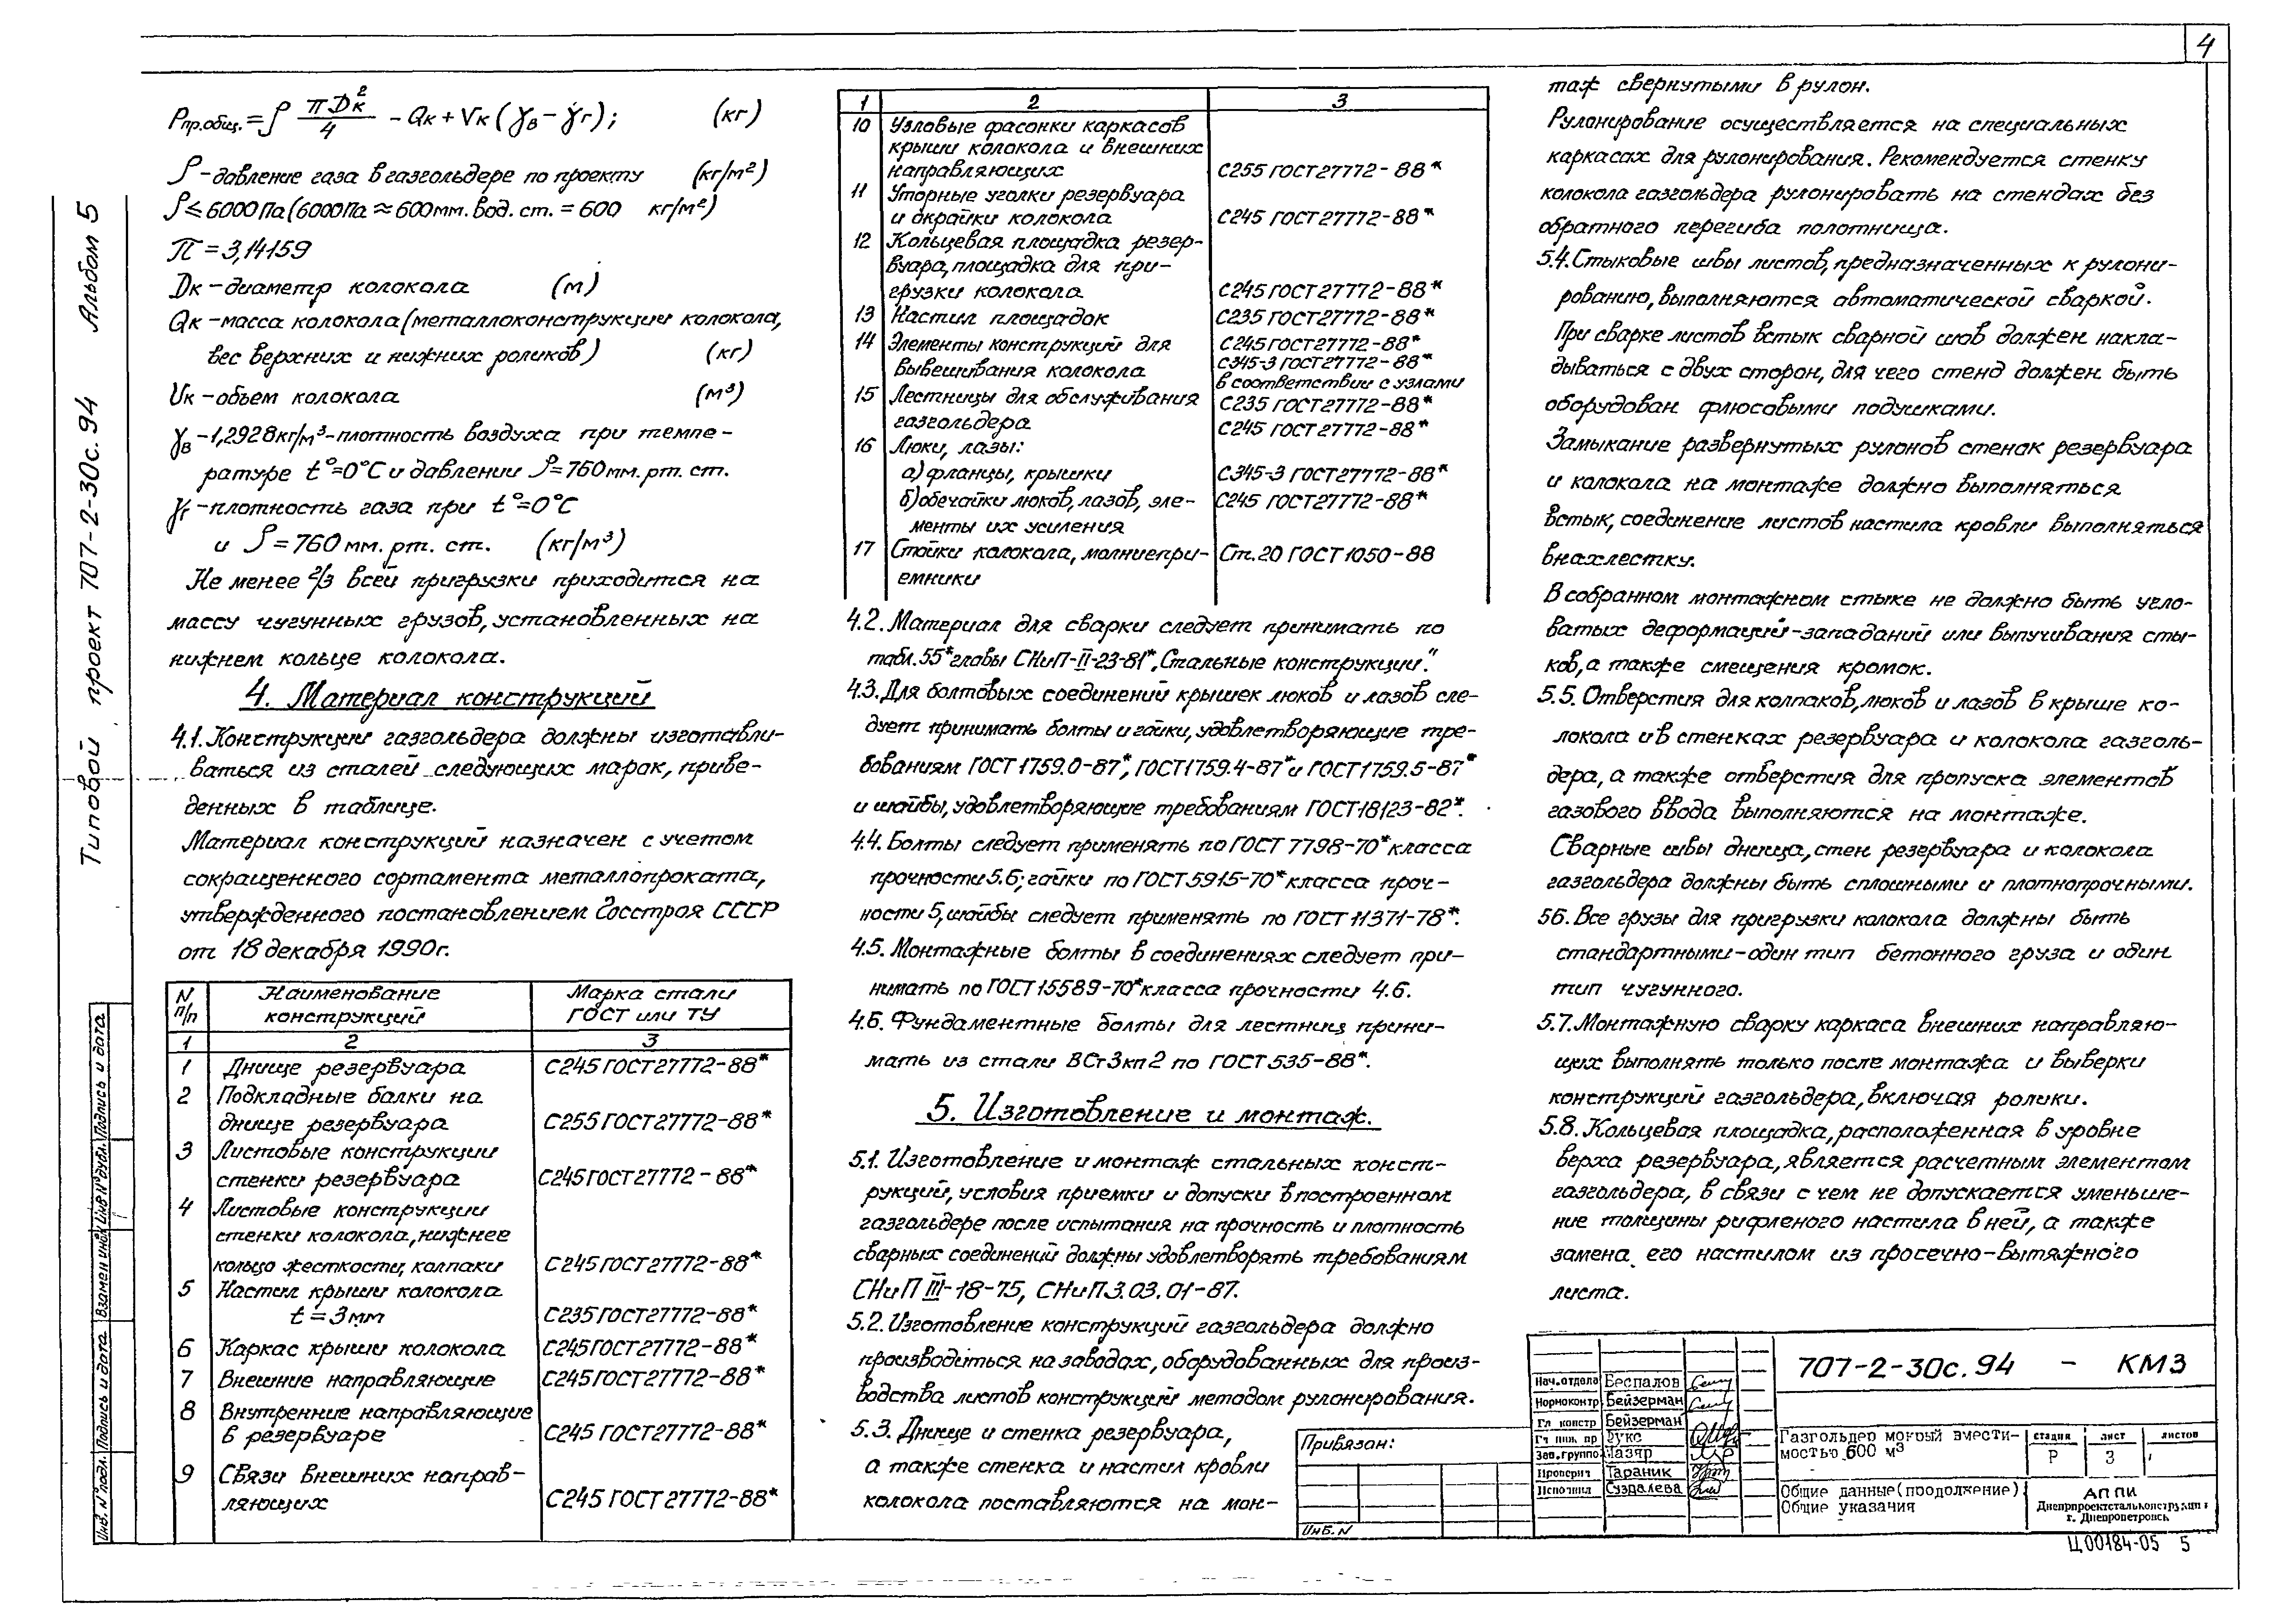 4
Типовой проект 707-2-30с.94 Альбом 5
Рпр.общ. = ρ πDк²/4 - Qк + Vк (γв - γг); (кг)
ρ - давление газа в газгольдере по проекту (кг/м²)
ρ ≤ 6000 Па (6000 Па ≈ 600 мм. вод. ст. = 600 кг/м²)
π = 3,14159
Dк - диаметр колокола (м)
Qк - масса колокола (металлоконструкции колокола,
вес верхних и нижних роликов) (кг)
Vк - объем колокола (м³)
γв - 1,2928 кг/м³ - плотность воздуха при темпе-
ратуре t°=0°С и давлении ρ=760 мм. рт. ст.
γг - плотность газа при t°=0°С
и ρ = 760 мм. рт. ст. (кг/м³)
Не менее 2/3 всей пригрузки приходится на
массу чугунных грузов, установленных на
нижнем кольце колокола.
4. Материал конструкций
4.1. Конструкции газгольдера должны изготавли-
ваться из сталей следующих марок, приве-
денных в таблице.
Материал конструкций назначен с учетом
сокращенного сортамента металлопроката,
утвержденного постановлением Госстроя СССР
от 18 декабря 1990г.
N п/п Наименование конструкций Марка стали ГОСТ или ТУ
1 2 3
1 Днище резервуара С245 ГОСТ 27772-88*
2 Подкладные балки на
днище резервуара С255 ГОСТ 27772-88*
3 Листовые конструкции
стенки резервуара С245 ГОСТ 27772-88*
4 Листовые конструкции
стенки колокола, нижнее
кольцо жесткости, колпаки С245 ГОСТ 27772-88*
5 Настил крыши колокола
t = 3мм С235 ГОСТ 27772-88*
6 Каркас крыши колокола С245 ГОСТ 27772-88*
7 Внешние направляющие С245 ГОСТ 27772-88*
8 Внутренние направляющие
в резервуаре С245 ГОСТ 27772-88*
9 Связи внешних направ-
ляющих С245 ГОСТ 27772-88*
1 2 3
10 Узловые фасонки каркасов
крыши колокола и внешних
направляющих С255 ГОСТ 27772-88*
11 Упорные уголки резервуара
и окрайки колокола С245 ГОСТ 27772-88*
12 Кольцевая площадка резер-
вуара, площадка для при-
грузки колокола С245 ГОСТ 27772-88*
13 Настил площадок С235 ГОСТ 27772-88*
14 Элементы конструкций для С245 ГОСТ 27772-88*
С345-3 ГОСТ 27772-88*
вывешивания колокола
в соответствии с узлами
15 Лестницы для обслуживания С235 ГОСТ 27772-88*
газгольдера С245 ГОСТ 27772-88*
16 Люки, лазы:
а) фланцы, крышки С345-3 ГОСТ 27772-88*
б) обечайки люков, лазов, эле- С245 ГОСТ 27772-88*
менты их усиления
17 Стойки колокола, молниепри- Ст.20 ГОСТ 1050-88
емники
4.2. Материал для сварки следует принимать по
табл. 55* главы СНиП-II-23-81* „Стальные конструкции."
4.3. Для болтовых соединений крышек люков и лазов сле-
дует принимать болты и гайки, удовлетворяющие тре-
бованиям ГОСТ 1759.0-87*, ГОСТ 1759.4-87* и ГОСТ 1759.5-87*
и шайбы, удовлетворяющие требованиям ГОСТ 18123-82*.
4.4. Болты следует применять по ГОСТ 7798-70* класса
прочности 5.6; гайки по ГОСТ 5915-70* класса проч-
ности 5, шайбы следует применять по ГОСТ 11371-78*.
4.5. Монтажные болты в соединениях следует при-
нимать по ГОСТ 15589-70* класса прочности 4.6.
4.6. Фундаментные болты для лестниц прини-
мать из стали ВСт3кп2 по ГОСТ 535-88*.
5. Изготовление и монтаж.
5.1. Изготовление и монтаж стальных конст-
рукций, условия приемки и допуски в построенном
газгольдере после испытания на прочность и плотность
сварных соединений должны удовлетворять требованиям
СНиП III-18-75, СНиП 3.03.01-87.
5.2. Изготовление конструкций газгольдера должно
производиться на заводах, оборудованных для произ-
водства листов конструкций методом рулонирования.
5.3. Днище и стенка резервуара,
а также стенка и настил кровли
колокола поставляются на мон-
таж свернутыми в рулон.
Рулонирование осуществляется на специальных
каркасах для рулонирования. Рекомендуется стенку
колокола газгольдера рулонировать на стендах без
обратного перегиба полотнища.
5.4. Стыковые швы листов, предназначенных к рулони-
рованию, выполняются автоматической сваркой.
При сварке листов встык сварной шов должен накла-
дываться с двух сторон, для чего стенд должен быть
оборудован флюсовыми подушками.
Замыкание развернутых рулонов стенок резервуара
и колокола на монтаже должно выполняться
встык, соединение листов настила кровли выполняться
внахлестку.
В собранном монтажном стыке не должно быть угло-
ватых деформаций - западаний или выпучивания сты-
ков, а также смещения кромок.
5.5. Отверстия для колпаков, люков и лазов в крыше ко-
локола и в стенках резервуара и колокола газголь-
дера, а также отверстия для пропуска элементов
газового ввода выполняются на монтаже.
Сварные швы днища, стен резервуара и колокола
газгольдера должны быть сплошными и плотнопрочными.
5.6. Все грузы для пригрузки колокола должны быть
стандартными - один тип бетонного груза и один
тип чугунного.
5.7. Монтажную сварку каркаса внешних направляю-
щих выполнять только после монтажа и выверки
конструкций газгольдера, включая ролики.
5.8. Кольцевая площадка, расположенная в уровне
верха резервуара, является расчетным элементом
газгольдера, в связи с чем не допускается уменьше-
ние толщины рифленого настила в ней, а также
замена его настилом из просечно-вытяжного
листа.
Привязан:
Инв. N
Нач.отдела Беспалов
Нормоконтр Бейзерман
Гл констр Бейзерман
Гл инж пр Рукс
Зав.группо Назяр
Проверил Тараник
Исполнил Суздалева
707-2-30с.94 - КМ3
Газгольдер мокрый вмести-
мостью 600 м³
стадия лист листов
Р 3
Общие данные (продолжение)
Общие указания
АП ПИ
Днепрпроектстальконструкция
г. Днепропетровск
Ц00184-05 5
Инв. N°подл. Подпись и дата Взамен инв Инв N°дубл. Подпись и дата